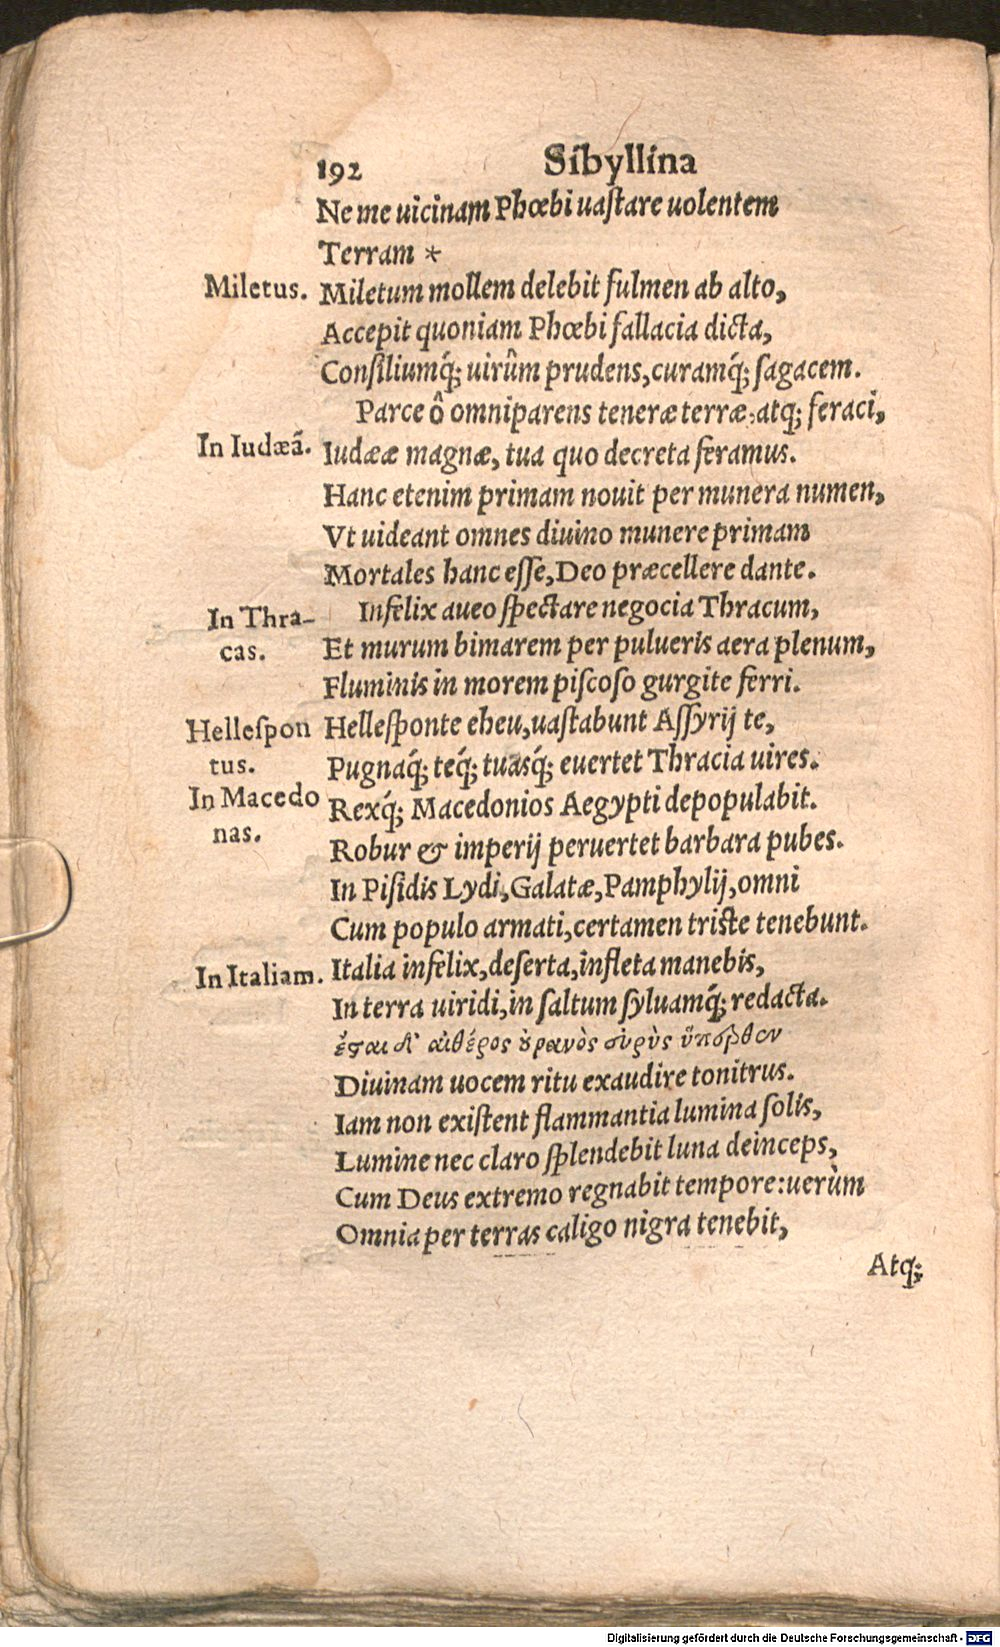 192 Sibyllina
Ne me uicinam Phœbi uaſtare uolentem
Terram *
Miletus. Miletum mollem delebit fulmen ab alto,
Accepit quoniam Phœbi fallacia dicta,
Conſiliumq́; uirûm prudens, curamq́; ſagacem.
Parce ô omniparens teneræ terræ, atq; feraci,
In Iudæã. Iudææ magnæ, tua quo decreta feramus.
Hanc etenim primam nouit per munera numen,
Vt uideant omnes diuino munere primam
Mortales hanc eſſe, Deo præcellere dante.
In Thra- Infelix aueo ſpectare negocia Thracum,
cas. Et murum bimarem per pulueris aera plenum,
Fluminis in morem piſcoſo gurgite ferri.
Helleſpon Helleſponte eheu, uaſtabunt Aſſyrij te,
tus. Pugnaq́; teq́; tuasq́; euertet Thracia uires.
In Macedo Rexq́; Macedonios Aegypti depopulabit.
nas. Robur & imperij peruertet barbara pubes.
In Piſidis Lydi, Galatæ, Pamphylij, omni
Cum populo armati, certamen triſte tenebunt.
In Italiam. Italia infelix, deſerta, infleta manebis,
In terra uiridi, in ſaltum ſyluamq́; redacta.
ἔσαι δ' αἰθέρος οὐρανὸς εὐρὺς ὕπερθεν
Diuinam uocem ritu exaudire tonitrus.
Iam non exiſtent flammantia lumina ſolis,
Lumine nec claro ſplendebit luna deinceps,
Cum Deus extremo regnabit tempore: uerùm
Omnia per terras caligo nigra tenebit,
Atq;
Digitalisierung gefördert durch die Deutsche Forschungsgemeinschaft - DFG